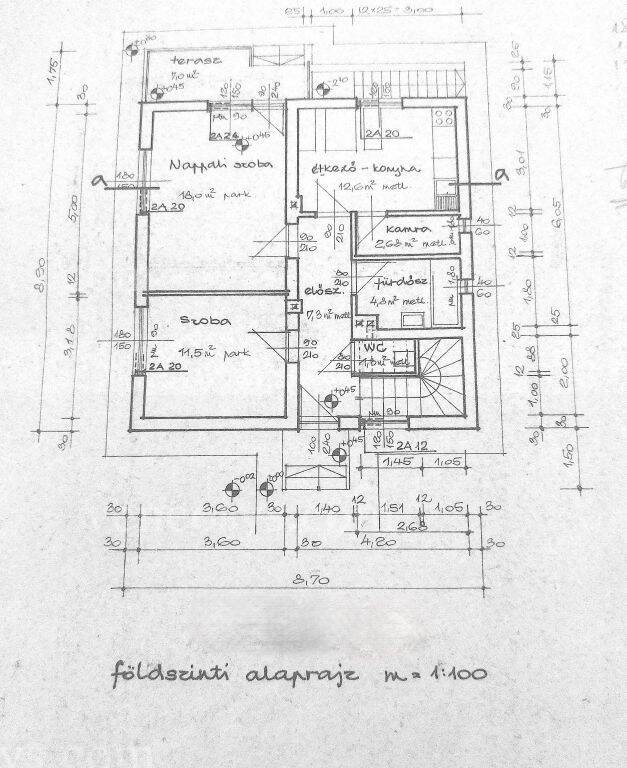 25 1,00 12x25=3,00
±0,00
terasz
7,0 m²
+0,45
120
150
90
240
-2,10
120
150
2A 24
+0,45
2A 20
Nappali szoba
18,0 m² park.
étkező - konyha
12,6 m² metl.
a
a
180
150
2A 20
90
210
90
210
kamra
2,68 m² metl.
40
60
90
210
fürdősz.
4,8 m² metl.
40
60
elősz.
7,3 m² metl.
szoba
11,5 m² park
180
150
2A 20
90
210
WC
80
210
+0,45
100
240
+0,45
120
150
2A 12
1,45 1,05
-0,02
1,75
30
5,00
8,90
12
3,18
30
25
20
30
1,15
3,01
6,05
12
1,00
12
1,80
25
25
12
88
2,00
1,00
30
1,50
30 3,60 30 1,40 12 1,51 12 1,05 30
2,68
30 3,60 30 4,20 30
8,70
földszinti alaprajz m = 1:100